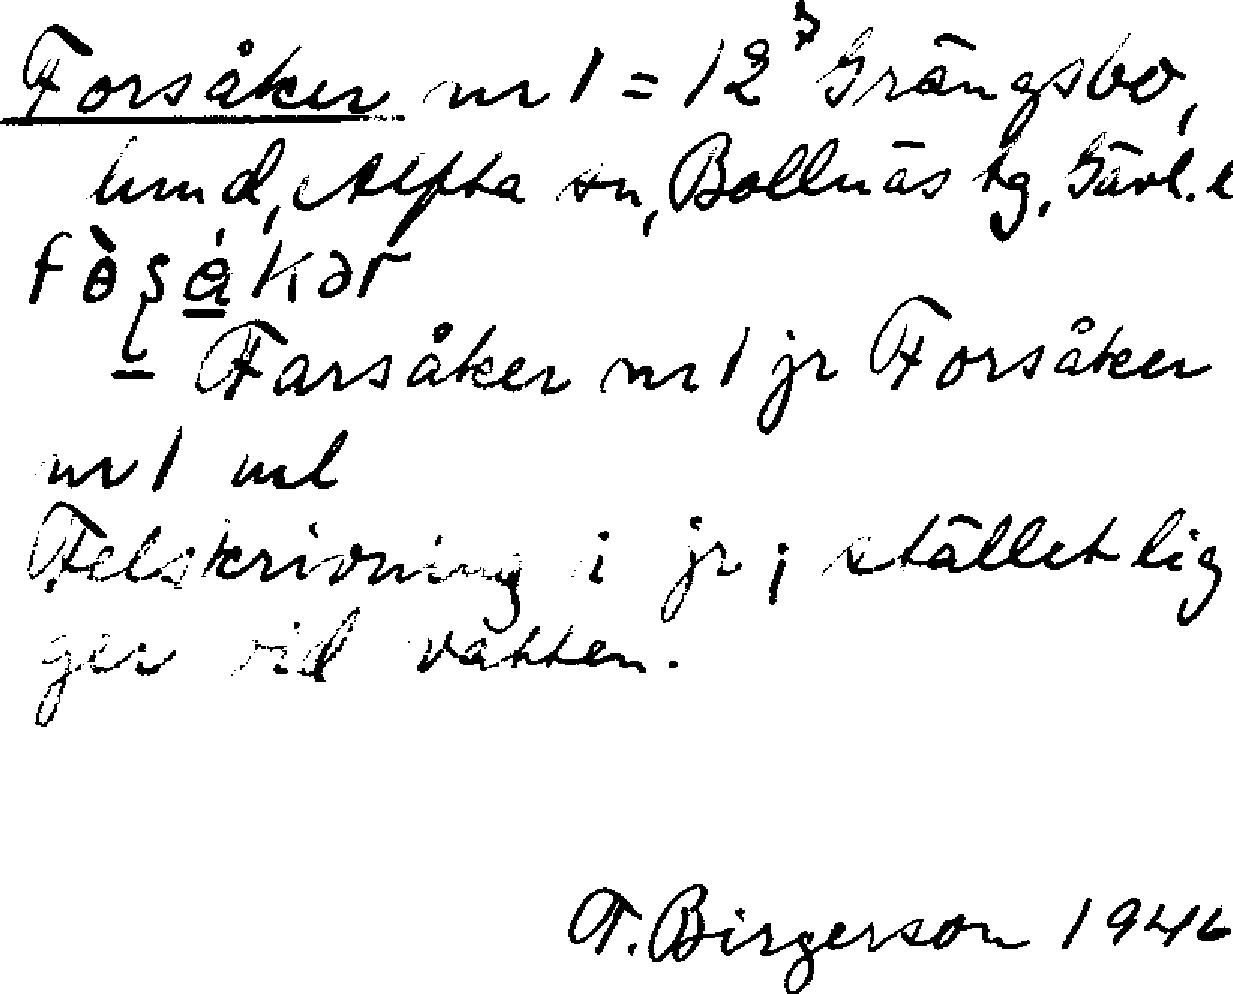 Forsåker nr 1 = 12³ Grängsbo,
hmd, Alfta sn, Bollnäs tg, Gävl. l
Farsåker nr 1 jr Forsåker
nr 1 ml
Felskrivning i jr; stället lig
ger vid vatten.
T. Birgerson 1946